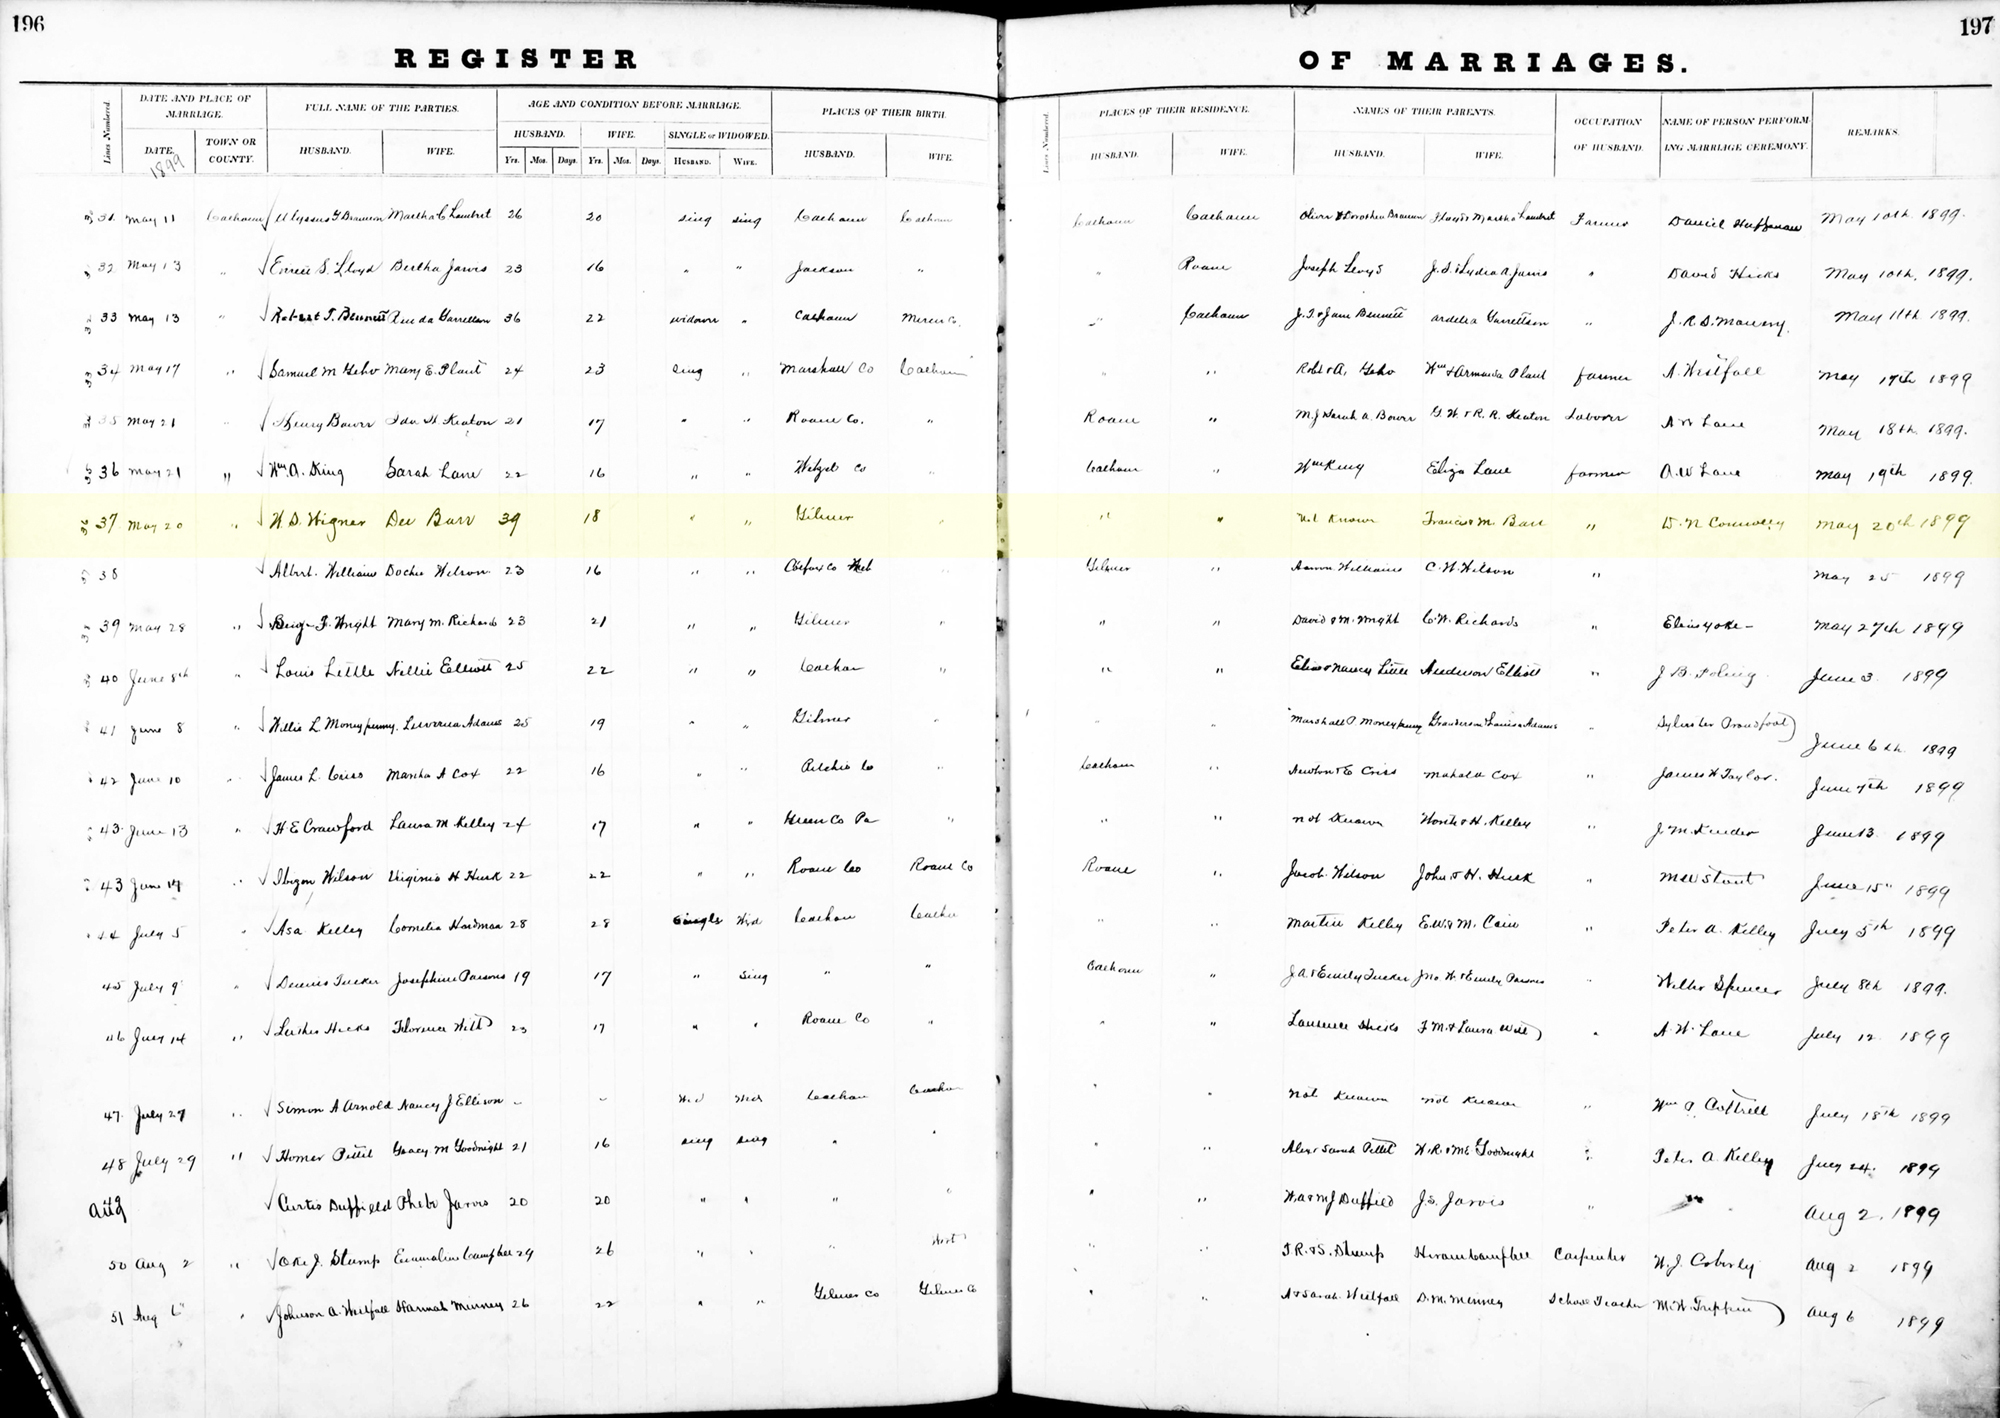 196
REGISTER
Lines Numbered.
DATE AND PLACE OF MARRIAGE.
FULL NAME OF THE PARTIES.
AGE AND CONDITION BEFORE MARRIAGE.
PLACES OF THEIR BIRTH.
DATE. TOWN OR COUNTY. HUSBAND. WIFE. HUSBAND. WIFE. SINGLE or WIDOWED. HUSBAND. WIFE.
1899
Yrs. Mos. Days. Yrs. Mos. Days. HUSBAND. WIFE.
31 May 11 Calhoun Ulyssus G Brannon Martha C Lambert 26 20 sing sing Calhoun Calhoun
32 May 13 " S. Lloyd Bertha Jarvis 23 16 " " Jackson "
33 May 13 " Robert T. Bennett 36 22 widower " Calhoun
34 May 17 " Samuel M Geho Mary E. Plant 24 23 sing " Marshall Co Calhoun
35 May 21 " Henry Bower Ida H Keaton 21 17 " " Roane Co. "
36 May 21 " Wm A. King Sarah Lane 22 16 " " Wetzel Co "
37 May 20 " W. D. Wigner Dee Barr 39 18 " " Gilmer "
38 Albert Williams Wilson 23 16 " " Co "
39 May 28 " Benj F. Wright Mary M. Richards 23 21 " " Gilmer "
40 June 8th " Louis Little Nellie Elliott 25 22 " " Calhoun "
41 June 8 " Willie L. Moneypenny Adams 25 19 " " Gilmer "
42 June 10 " James L. Criss Martha A Cox 22 16 " " Ritchie Co "
43 June 13 " H E Crawford Laura M. Kelley 24 17 " " Green Co Pa "
43 June 14 " Wilson Virginia H Husk 22 22 " " Roane Co Roane Co
44 July 5 " Asa Kelley Cornelia Hardman 28 28 single Wid Calhoun Calhoun
45 July 9 " Dennis Tucker Josephine Parsons 19 17 " sing " "
46 July 14 " Luther Hicks Florence Witt 23 17 " " Roane Co "
47 July 27 " Simon A Arnold Nancy J Ellison - - Wid Wid Calhoun Calhoun
48 July 29 " Homer Pettit Gracy M Goodnight 21 16 sing sing " "
Aug Curtis Duffield Phebe Jarvis 20 20 " " " "
50 Aug 2 " Oke J. Stump Emmaline Campbell 29 26 " " "
51 Aug 6" " Johnson A. Westfall Hannah Minney 26 22 " " Gilmer Co Gilmer Co
197
OF MARRIAGES.
Lines Numbered.
PLACES OF THEIR RESIDENCE.
NAMES OF THEIR PARENTS.
OCCUPATION OF HUSBAND.
NAME OF PERSON PERFORMING MARRIAGE CEREMONY.
REMARKS.
HUSBAND. WIFE. HUSBAND. WIFE.
Calhoun Calhoun Oliver & Dorothea Brannon Martha Lambert Farmer Daniel Huffman May 10th 1899.
" Roane Joseph J. S. & Lydia A Jarvis " David Hicks May 10th, 1899.
" Calhoun J. T. & Jane Bennett Ardelia Garrettson " J. R. D. May 11th 1899.
" " Robt & A. Geho Wm & Armanda Plant farmer A. Westfall May 17th 1899
Roane " M. J Sarah A Bower G. W. & R. R. Keaton Laborer A W Lane May 18th 1899.
Calhoun " Wm King Eliza Lane farmer A. W Lane May 19th 1899.
" " Not Known Francis M. Barr " D. N Connolly May 20th 1899
Gilmer " Aaron Williams C. W. Wilson " May 25 1899
" " David & M. Wright C. W. Richards " May 27th 1899
" " Elias & Nancy Little Anderson Elliott " J B. Poling June 3. 1899
" " Marshall P Moneypenny Granderson & Louisa Adams " Sylvester Proudfoot June 6th. 1899
Calhoun " Newton & E Criss Mahala Cox " James H Taylor. June 7th 1899
" " not Known & H. Kelley " J. M. June 13. 1899
Roane " Jacob Wilson John & H. Husk " M W Stout June 15" 1899
" " Martin Kelley E. W. & M. Cain " Peter A. Kelley July 5th 1899
Calhoun " J. A & Emily Tucker Jno W & Emily Parsons " Spencer July 8th 1899.
" " Laurence Hicks F. M. & Laura Witt " A. W. Lane July 12 1899
" " Not Known not Known " Wm P. Cottrell July 18th 1899
" " Alex & Sarah Pettit W. R. & M E Goodnight " Peter A. Kelley July 24. 1899
" " W. A & M J Duffield J. S. Jarvis " Aug 2, 1899
" " T. R. & S. Stump Hiram Campbell Carpenter W. J. Coberly Aug 2 1899
" " A & Sarah Westfall D. M. Minney School Teacher M. W. Aug 6 1899